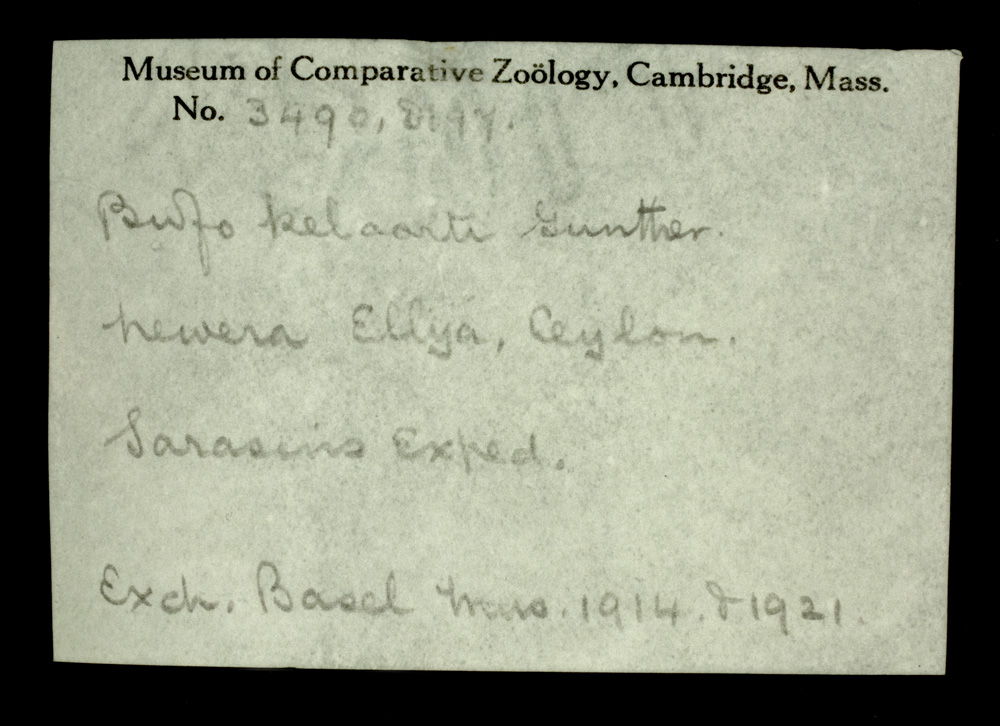 Museum of Comparative Zoölogy, Cambridge, Mass.
No. 3490, 8197.
Bufo kelaarti Gunther.
newera Ellya, Ceylon.
Sarasins Exped.
Exch. Basel Mus. 1914. & 1921.